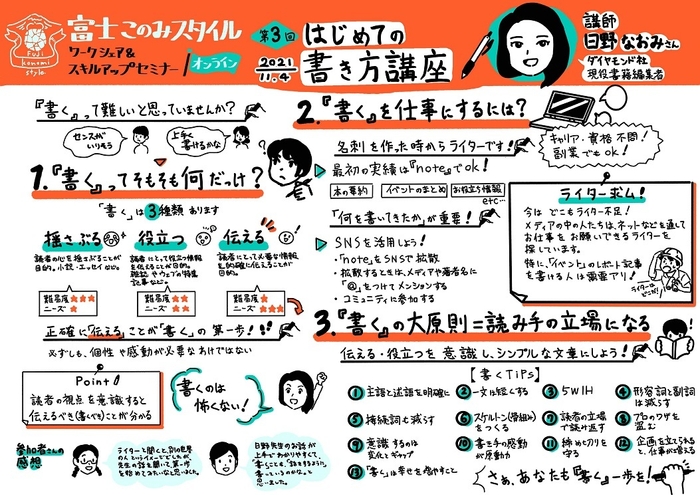 Fuji
Konomi
style
富士このみスタイル
ワークシェア&
スキルアップセミナー
オンライン
第3回
2021
11.4
はじめての
書き方講座
講師
日野なおみさん
ダイヤモンド社
現役書籍編集者
『書く』って難しいと思っていませんか?
センスが
いりそう
上手く
書けるかな
1.『書く』ってそもそも何だっけ?
「書く」は3種類あります
揺さぶる
読者の心を揺さぶることが
目的。小説・エッセイなど。
役立つ
読者にとって役立つ情報
を伝えることが目的。
雑誌やウェブの特集
記事など。
伝える
読者にとって必要な情報
を的確に伝えることが
目的。
難易度★★★
ニーズ ★
難易度★★
ニーズ ★★
難易度★
ニーズ ★★★
正確に「伝える」ことが「書く」の第一歩!!
必ずしも、個性や感動が必要なわけではない
Point!
読者の視点を意識すると
伝えるべき(書くべき)ことが分かる
書くのは
怖くない!
参加者さんの
感想
2.『書く』を仕事にするには?
名刺を作った時からライターです!
最初の実績は『note』でok!
本の要約
イベントのまとめ
お役立ち情報
etc…
「何を書いてきたか」が重要!
SNSを活用しよう!
・「note」をSNSで拡散
・拡散するときは、メディアや著者名に
「@」をつけてメンションする
・コミュニティに参加する
キャリア・資格不問!
副業でもok!
ライター求ム!
今はどこもライター不足!
メディアの中の人たちは、ネットなどを通して
お仕事をお願いできるライターを
探しています。
特に、「イベント」のレポート記事
を書ける人は需要アリ!
ライターは
どこだ!
3.『書く』の大原則=読み手の立場になる
伝える・役立つを意識し、シンプルな文章にしよう!
【書くTIPS】
①主語と述語を明確に
②一文は短くする
③5W1H
④形容詞と副詞
は減らす
⑤接続詞も減らす
⑥スケルトン(骨組み)
をつくる
⑦読者の立場
で読み返す
⑧プロのワザを
盗む
⑨意識するのは
変化とギャップ
⑩書き手の感動
が原動力
⑪締め切りを
守る
⑫企画を立てられる
と、仕事が増える
⑬「書く」は幸せを増やすこと
さぁ、あなたも『書く』一歩を!